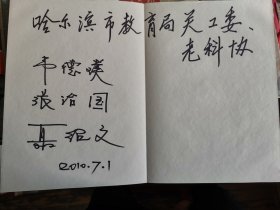 哈尔滨市教育局关工委、
老科协
韦傑瞨
张治国
聂绍文
2010.7.1